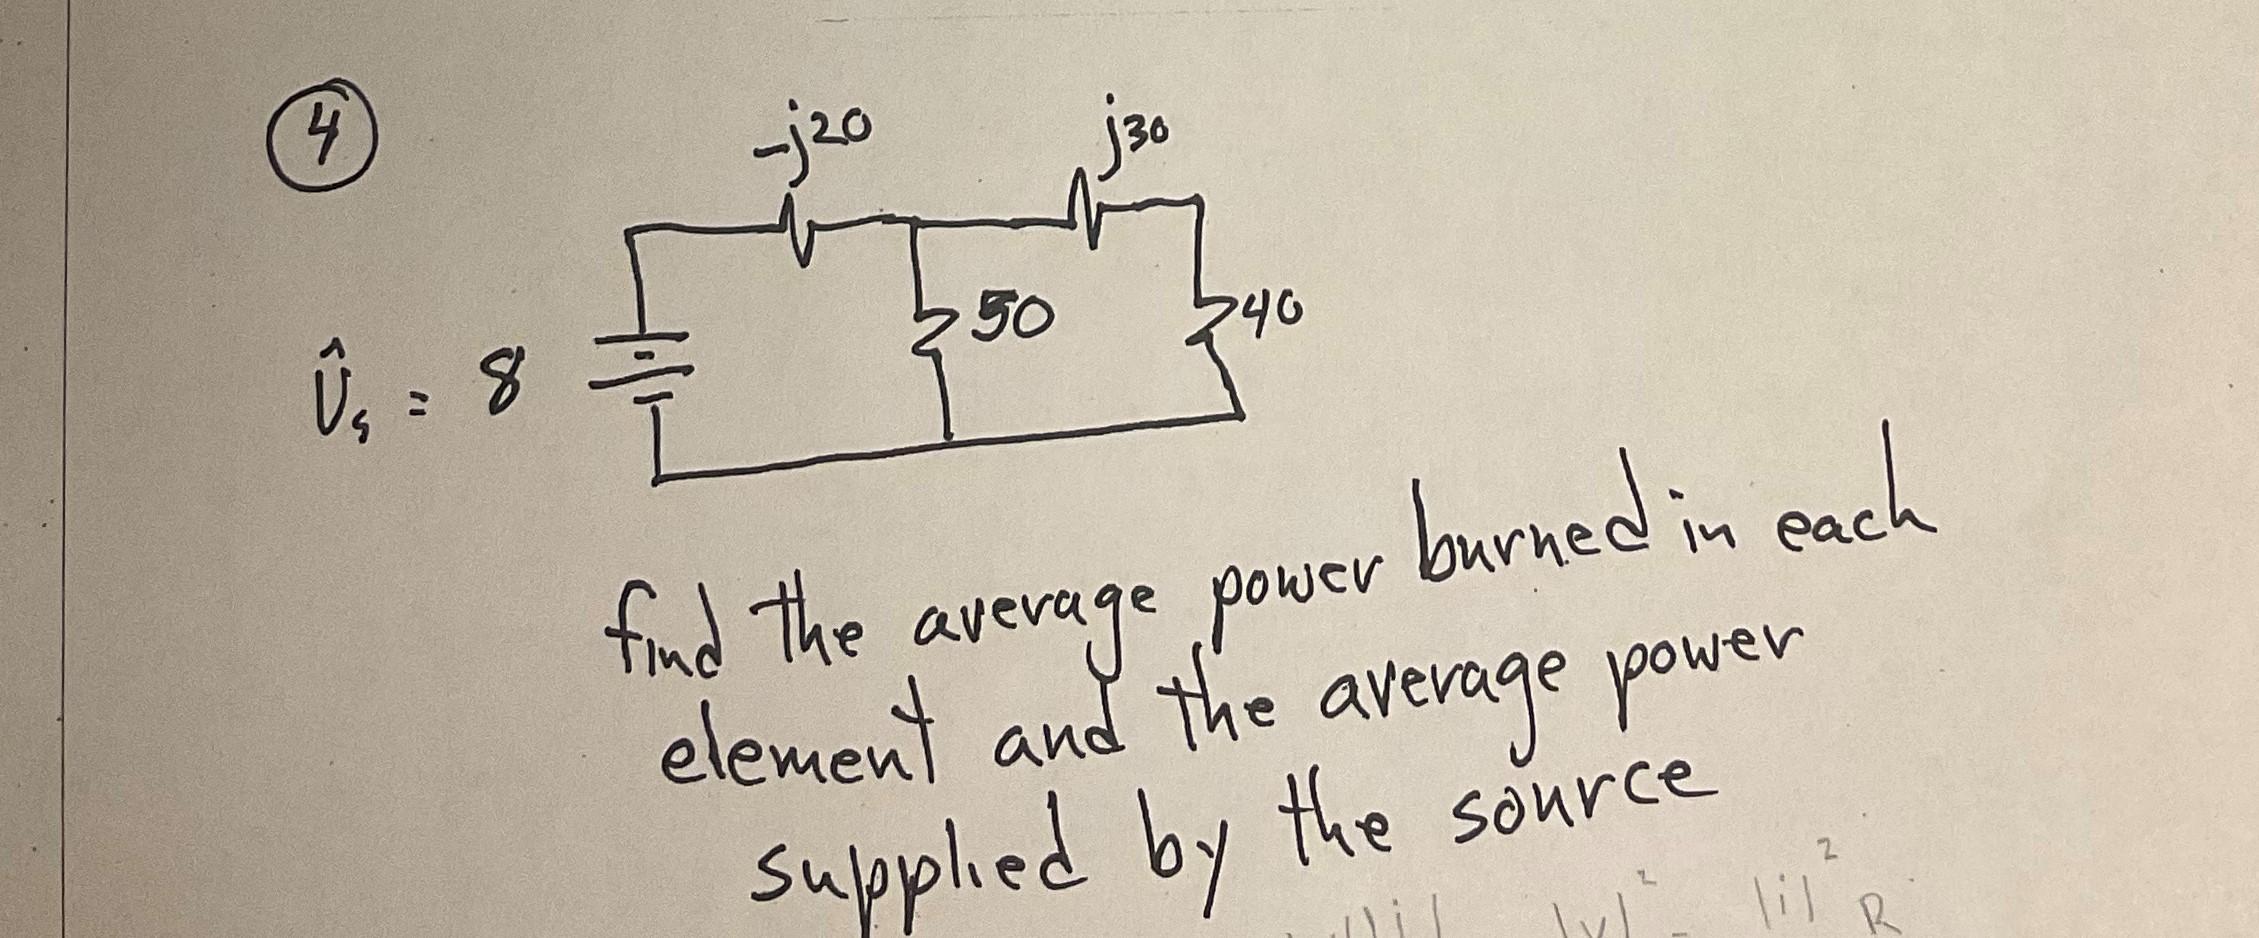 4
-j20
j30
50
40
v̂s = 8
find the average power burned in each
element and the average power
supplied by the source
|i| |v|² = |i|² R